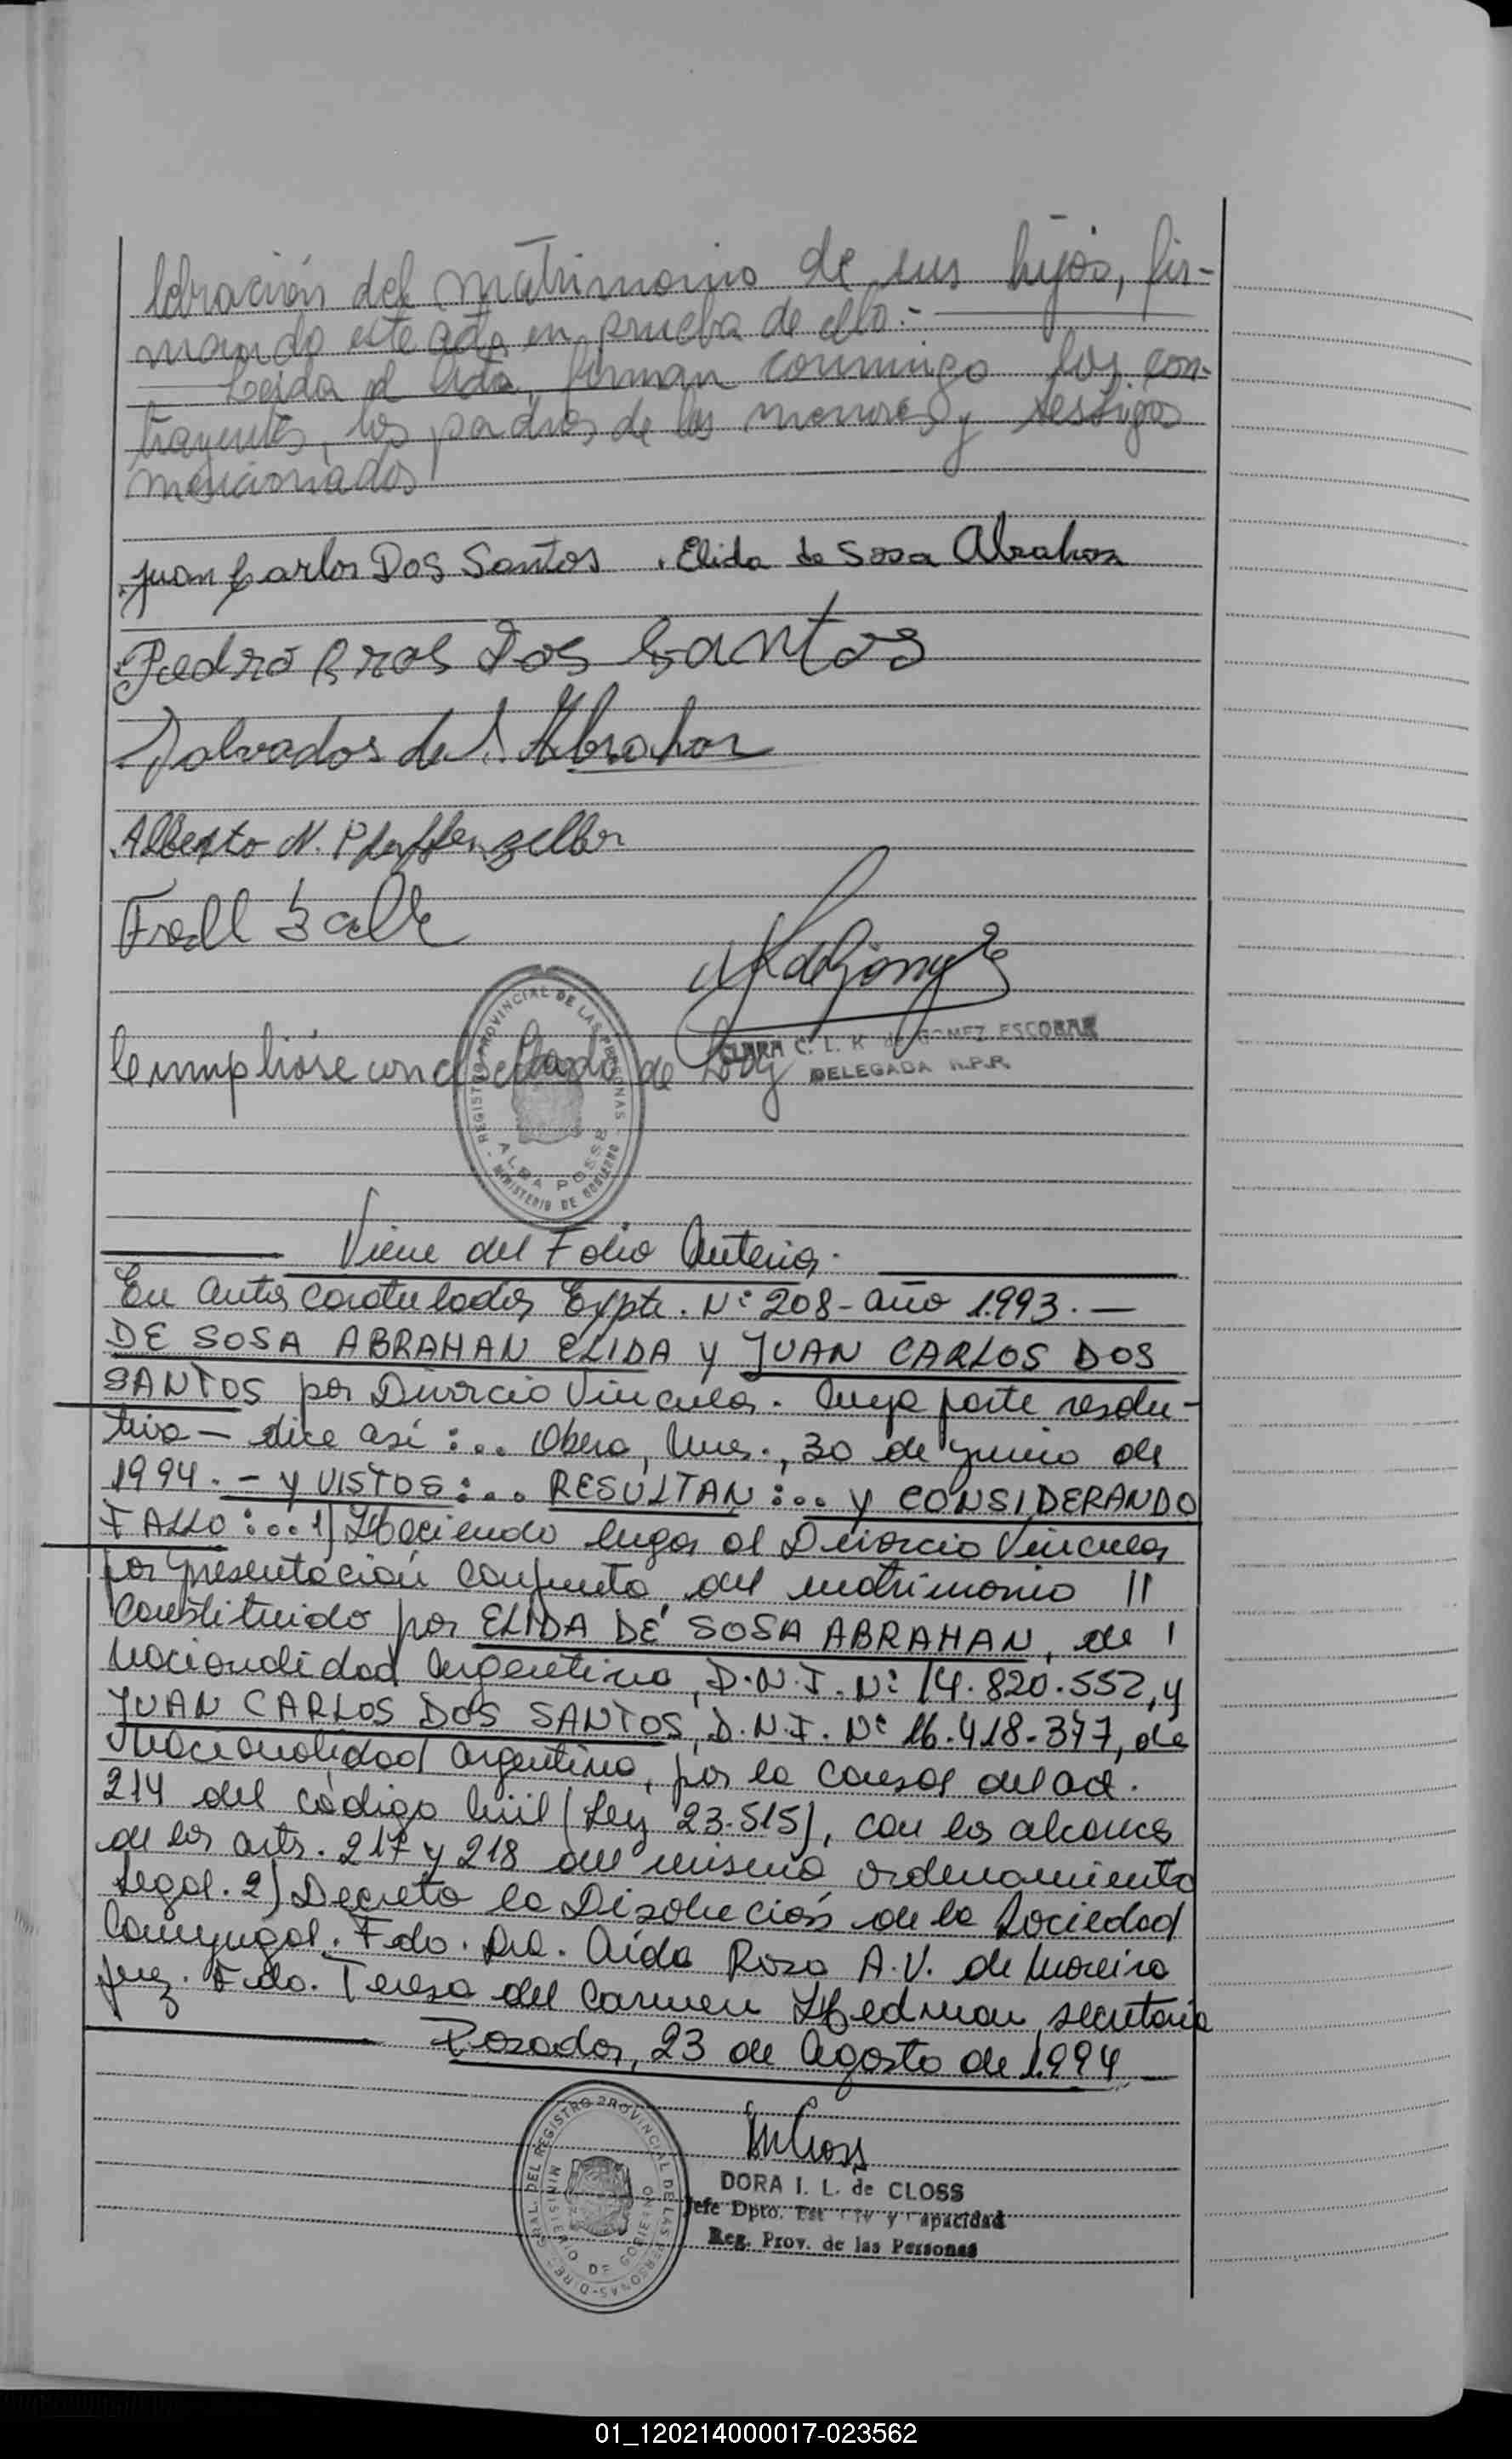 lebración del matrimonio de sus hijos, fir-
mando este acta en prueba de ello.-
Leída el acta, firman conmigo los con-
trayentes, los padres de los menores y testigos
mencionados
Juan Carlos Dos Santos . Elida de Sosa Abrahan
Pedro Dos Santos
de Abrahan
Alberto N. Pfaffenzeller
CLARA C. L. K de GOMEZ ESCOBAR
DELEGADA R.P.P.
Cumplióse con el sellado de Ley
REGISTRO PROVINCIAL DE LAS PERSONAS - MINISTERIO DE GOBIERNO
ALBA POSSE
Viene del Folio Anterior.
En autos caratulados Expte. Nº 208 - año 1.993. —
DE SOSA ABRAHAN ELIDA y JUAN CARLOS DOS
SANTOS por Divorcio Vincular. Cuya parte resolu-
tiva — dice así :... Obera, Mnes., 30 de Junio de
1994. - y VISTOS:... RESULTAN:... y CONSIDERANDO
FALLO:... 1) Haciendo lugar al Divorcio Vincular
por presentación conjunta del matrimonio //
Constituido por ELIDA DE SOSA ABRAHAN, de /
Nacionalidad Argentina, D.N.I. Nº 14.820.552, y
JUAN CARLOS DOS SANTOS, D.N.I. Nº 16.418.347, de
Nacionalidad Argentina, por la causal del art.
214 del código Civil (Ley 23.515), con los alcances
de los arts. 217 y 218 del mismo ordenamiento
Legal. 2) Decreto la Disolución de la Sociedad
Conyugal. Fdo. Dra. Aida Rosa A.V. de Moreira
Juez. Fdo. Teresa del Carmen Hedman, secretaria
Posadas, 23 de Agosto de 1.994 —
DIREC. GRAL. DEL REGISTRO PROVINCIAL DE LAS PERSONAS
MINISTERIO DE GOBIERNO
DORA I. L. de CLOSS
Jefe Dpto. Est Civ y Capacidad
Reg. Prov. de las Personas
01_120214000017-023562